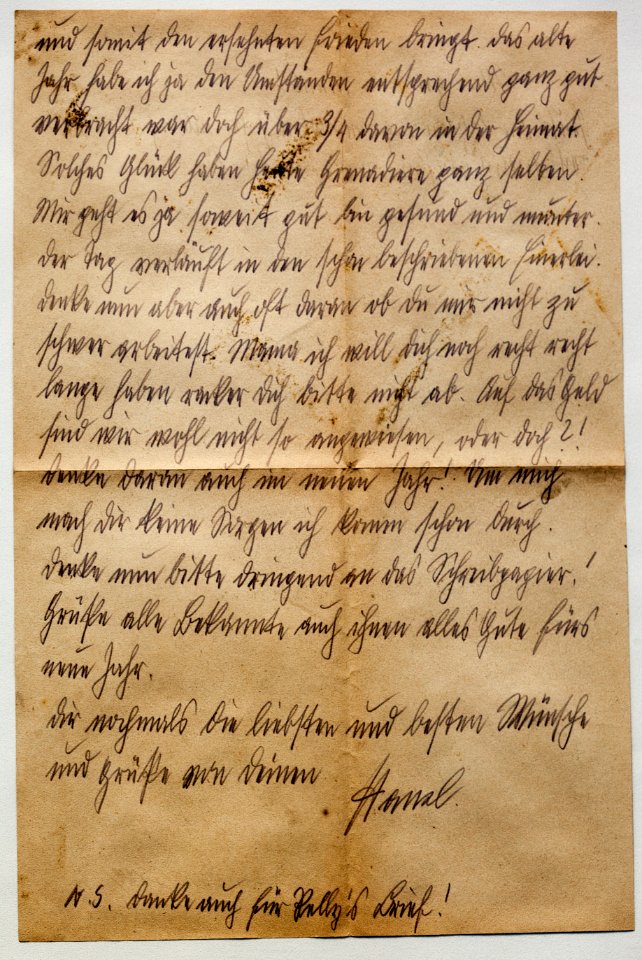 und somit den ersehnten Frieden bringt. Das alte
Jahr habe ich ja den Umständen entsprechend ganz gut
verbracht war doch über 3/4 davon in der Heimat.
Solches Glück haben heute Grenadiere ganz selten.
Mir geht es ja soweit gut bin gesund und munter.
Der Tag verläuft in den schon beschriebenen Einerlei.
Denke nun aber auch oft daran ob Du mir nicht zu
schwer arbeitest. Mama ich will Dich noch recht recht
lange haben racker Dich bitte nicht ab. Auf das Geld
sind wir wohl nicht so angewiesen, oder doch?!
Denke daran auch im neuen Jahr! Um mich
mach Dir keine Sorgen ich komm schon durch.
Denke nun bitte dringend an das Schreibpapier.!
Grüße alle Bekannte auch ihnen alles Gute fürs
neue Jahr.
Dir nochmals die liebsten und besten Wünsche
und Grüße von Deinen
N.S. Danke auch für Brief!